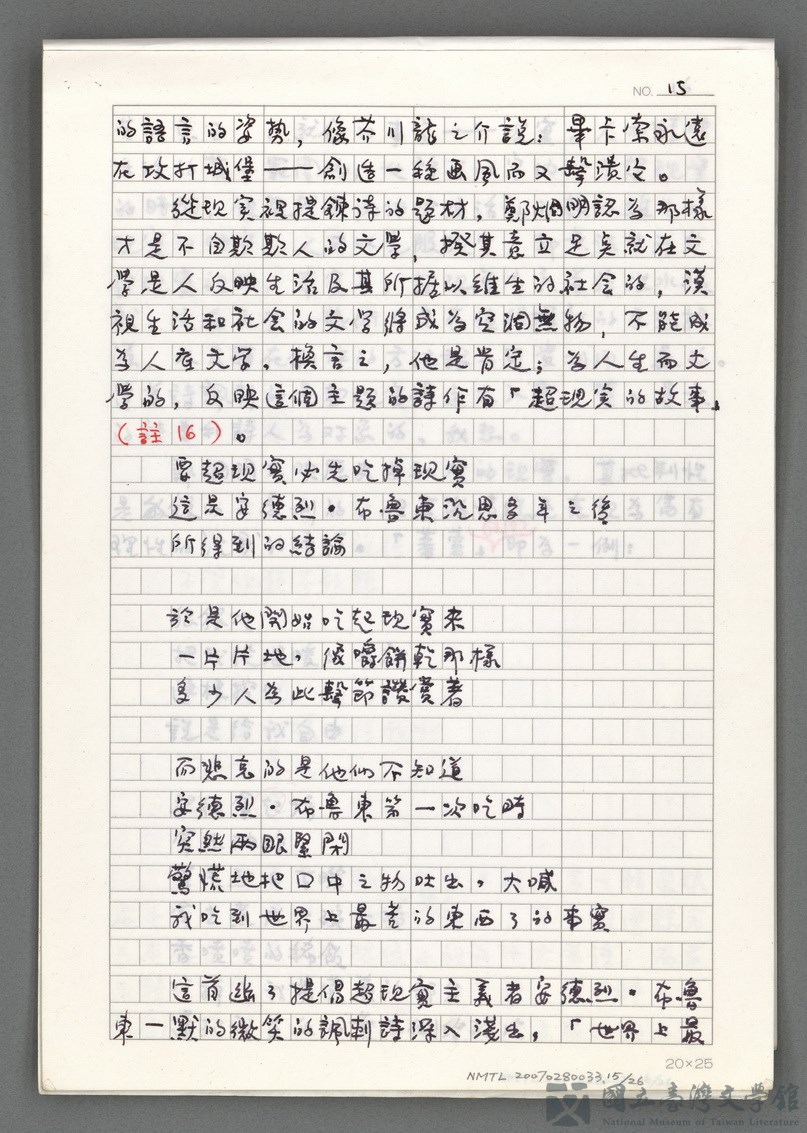 NO. 15
的語言的姿勢，像芥川龍之介說：畢卡索永遠
在攻打城堡——創造一種画風而又擊潰它。
從現実裡提鍊詩的題材，鄭烱明認為那樣
才是不自欺欺人的文學，揆其意立足点就在文
學是人反映生活及其所据以維生的社会的，漠
視生活和社会的文学將成為空洞無物，不能成
為人座文学。換言之，他是肯定；為人生而文
學的，反映這個主題的詩作有「超現実的故事」
（註16）。
要超現實必先吃掉現實
這是安德烈・布魯東沉思多年之後
所得到的結論
於是他開始吃起現實來
一片片地，像嚼餅乾那樣
多少人為此擊節讚賞著
而悲哀的是他們不知道
安德烈・布魯東第一次吃時
突然兩眼緊閉
驚慌地把口中之物吐出，大喊
我吃到世界上最苦的東西了的事實
這首幽了提倡超現實主義者安德烈・布魯
東一默的微笑的諷刺詩深入淺出，「世界上最
20×25
NMTL 20070280033.15/26
國立臺灣文學館
National Museum of Taiwan Literature